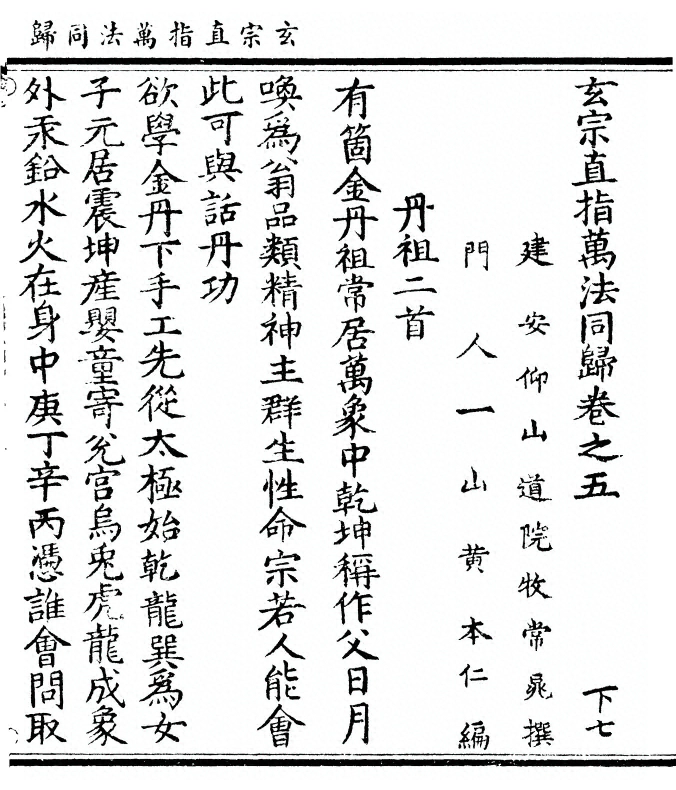 玄宗直指萬法同歸
玄宗直指萬法同歸卷之五 下七
建安仰山道院牧常晁撰
門人一山黄本仁編
丹祖二首
有箇金丹祖常居萬象中乾坤稱作父日月
喚爲翁品類精神主群生性命宗若人能會
此可與話丹功
欲學金丹下手工先從太極始乾龍巽爲女
子元居震坤産嬰童寄兊宫烏兎虎龍成象
外汞鉛水火在身中庚丁辛丙憑誰會問取